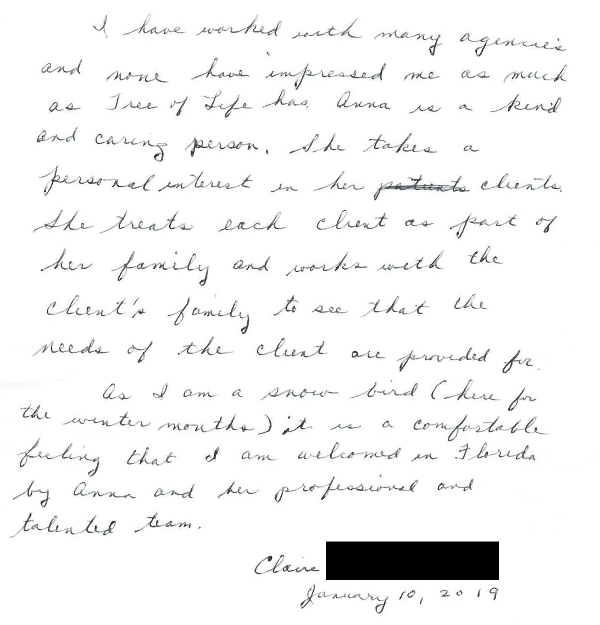 I have worked with many agencies
and none have impressed me as much
as Tree of Life has. Anna is a kind
and caring person. She takes a
personal interest in her patients clients.
She treats each client as part of
her family and works with the
client's family to see that the
needs of the client are provided for.
As I am a snow bird (here for
the winter months) it is a comfortable
feeling that I am welcomed in Florida
by Anna and her professional and
talented team.
Claire
January 10, 2019